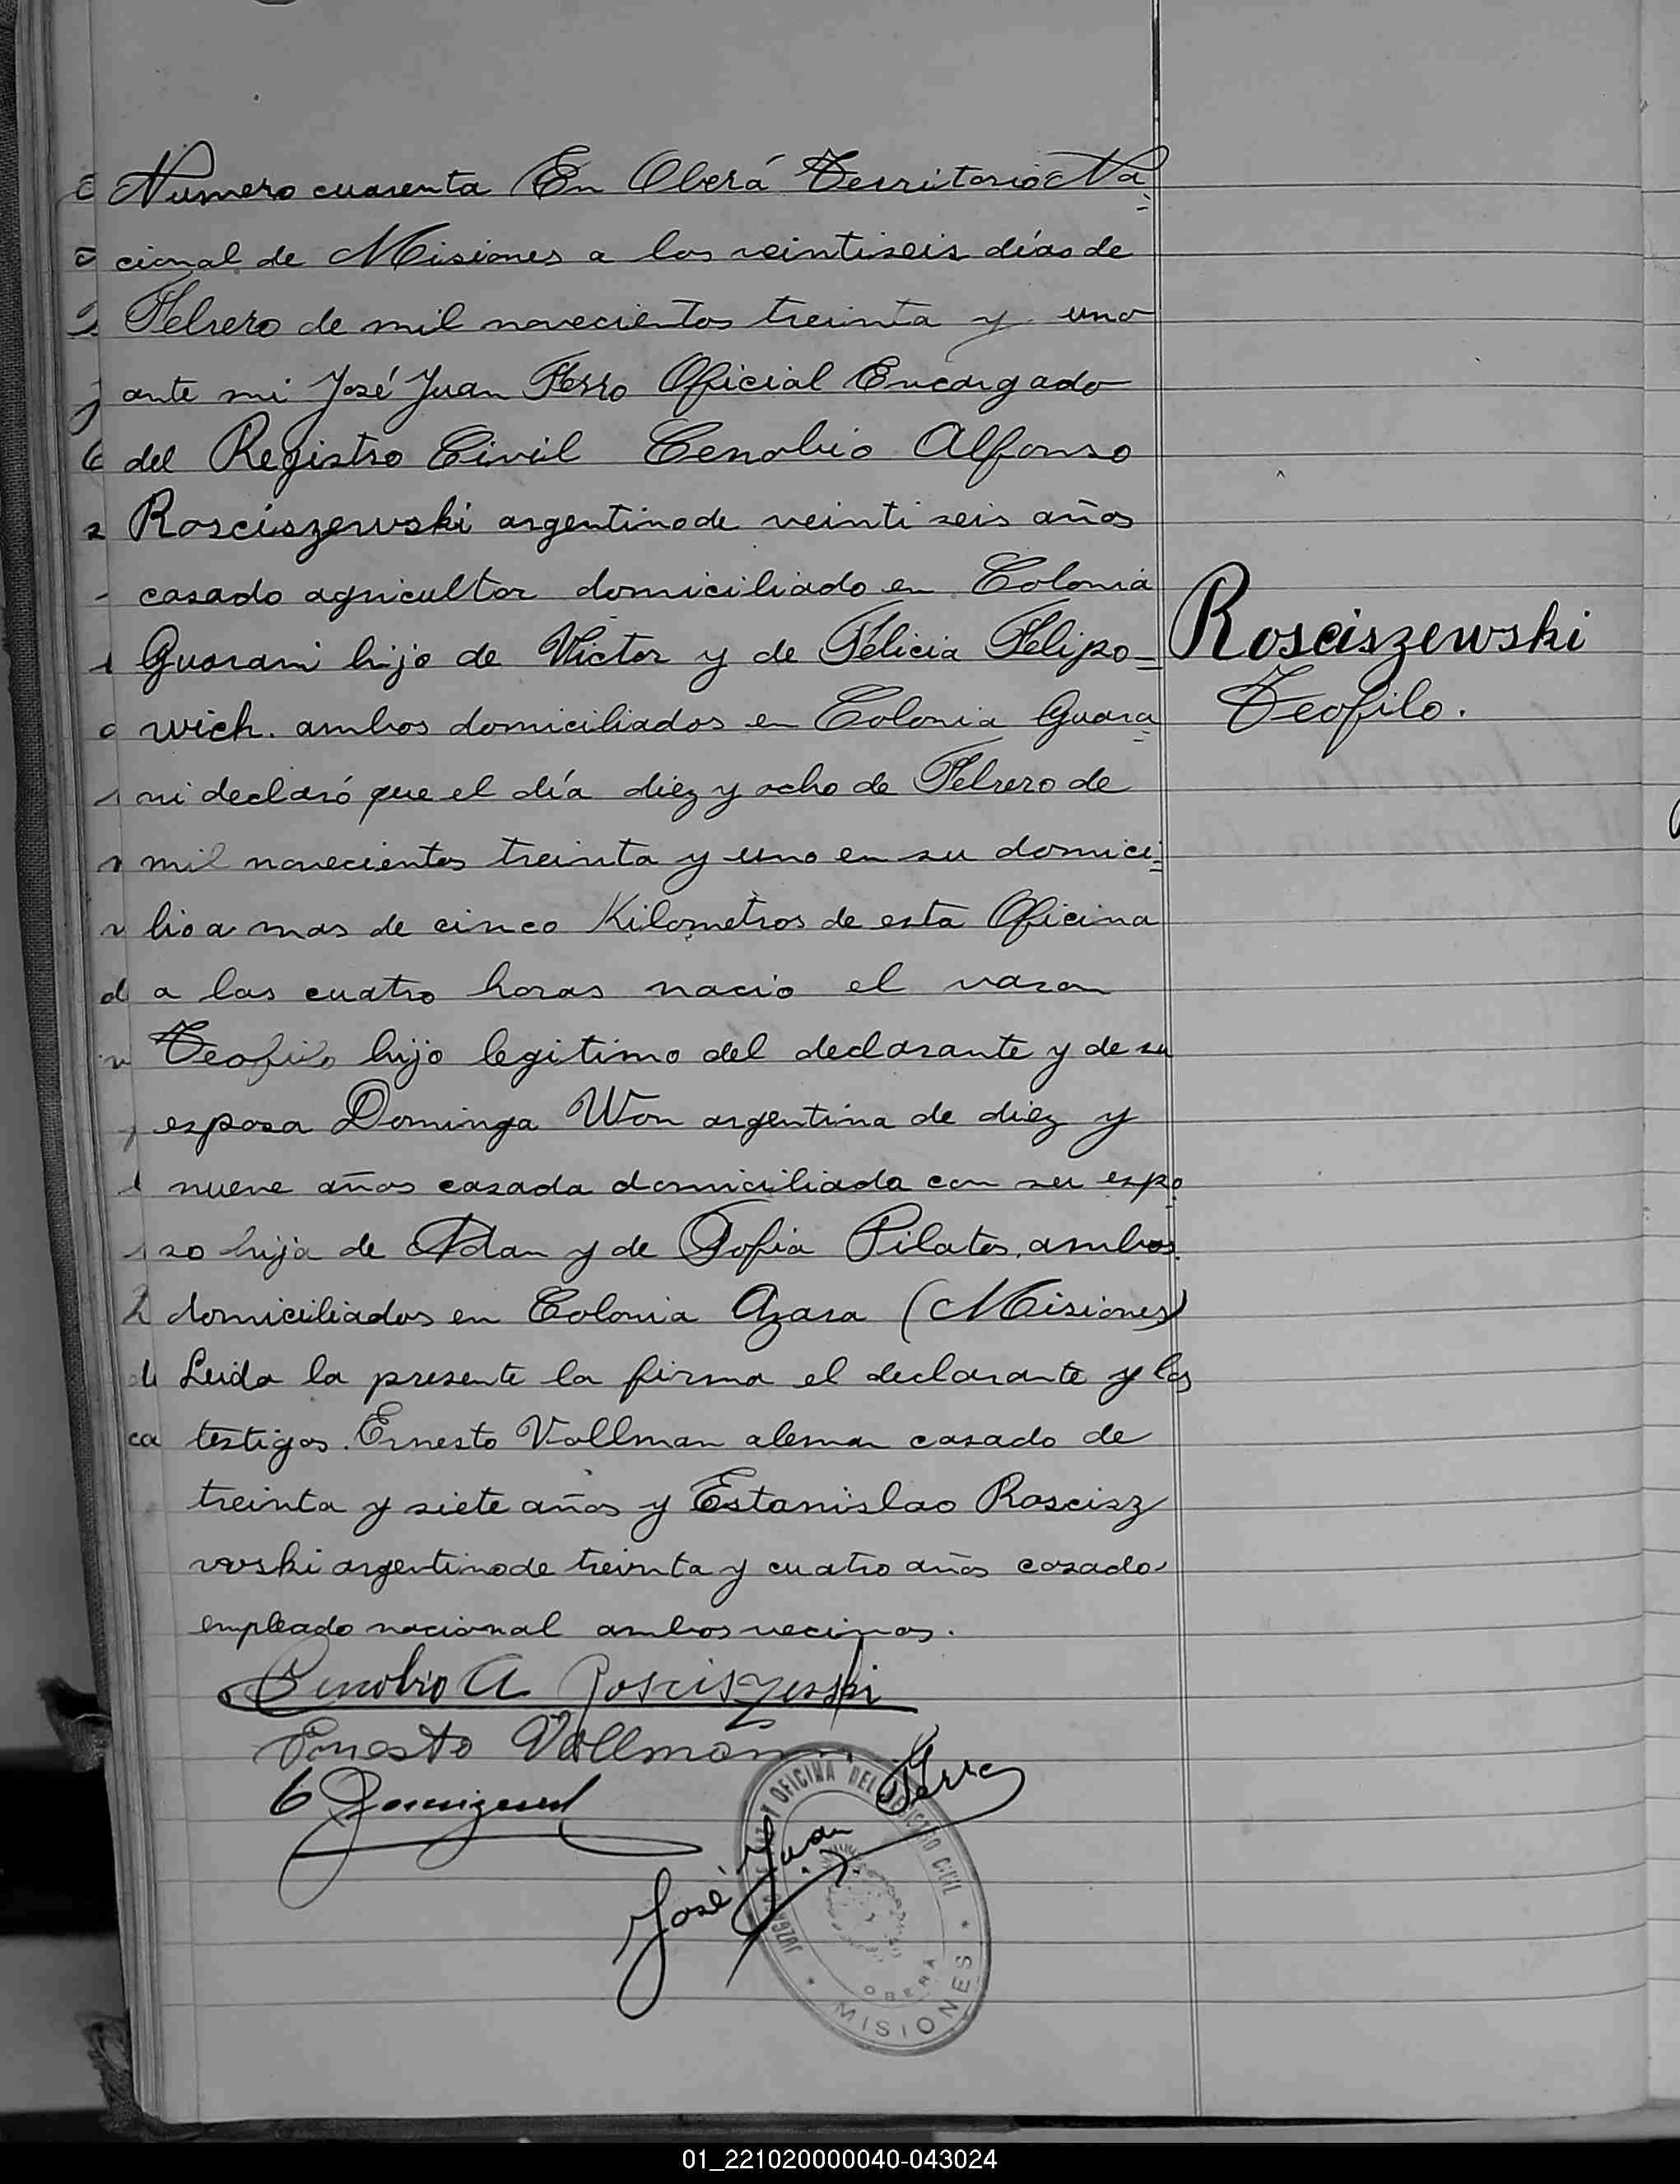 Numero cuarenta En Oberá Territorio Na=
cional de Misiones a los veintiseis días de
Febrero de mil novecientos treinta y uno
ante mi José Juan Ferro Oficial Encargado
del Registro Civil Cenobio Alfonso
Rosciszewski argentino de veinti seis años
casado agricultor domiciliado en Colonia
Guarani hijo de Victor y de Felicia Felipo=
wich. ambos domiciliados en Colonia Guara=
ni declaró que el día diez y ocho de Febrero de
mil novecientos treinta y uno en su domici=
lio a mas de cinco Kilometros de esta Oficina
a las cuatro horas nacio el varon
Teofilo hijo legitimo del declarante y de su
esposa Dominga Won argentina de diez y
nueve años casada domiciliada con su espo
so hija de Adan y de Sofia Pilatos, ambos
domiciliados en Colonia Azara (Misiones)
Leida la presente la firma el declarante y los
testigos. Ernesto Vollman aleman casado de
treinta y siete años y Estanislao Roscisz
wski argentino de treinta y cuatro años casado
empleado nacional ambos vecinos.
Rosciszewski
Teofilo.
Cenobio A Rosciszeski
Ernesto Vollman
José Juan Ferro
JUZGADO DE PAZ Y OFICINA DEL REGISTRO CIVIL
OBERÁ
* MISIONES *
01_221020000040-043024